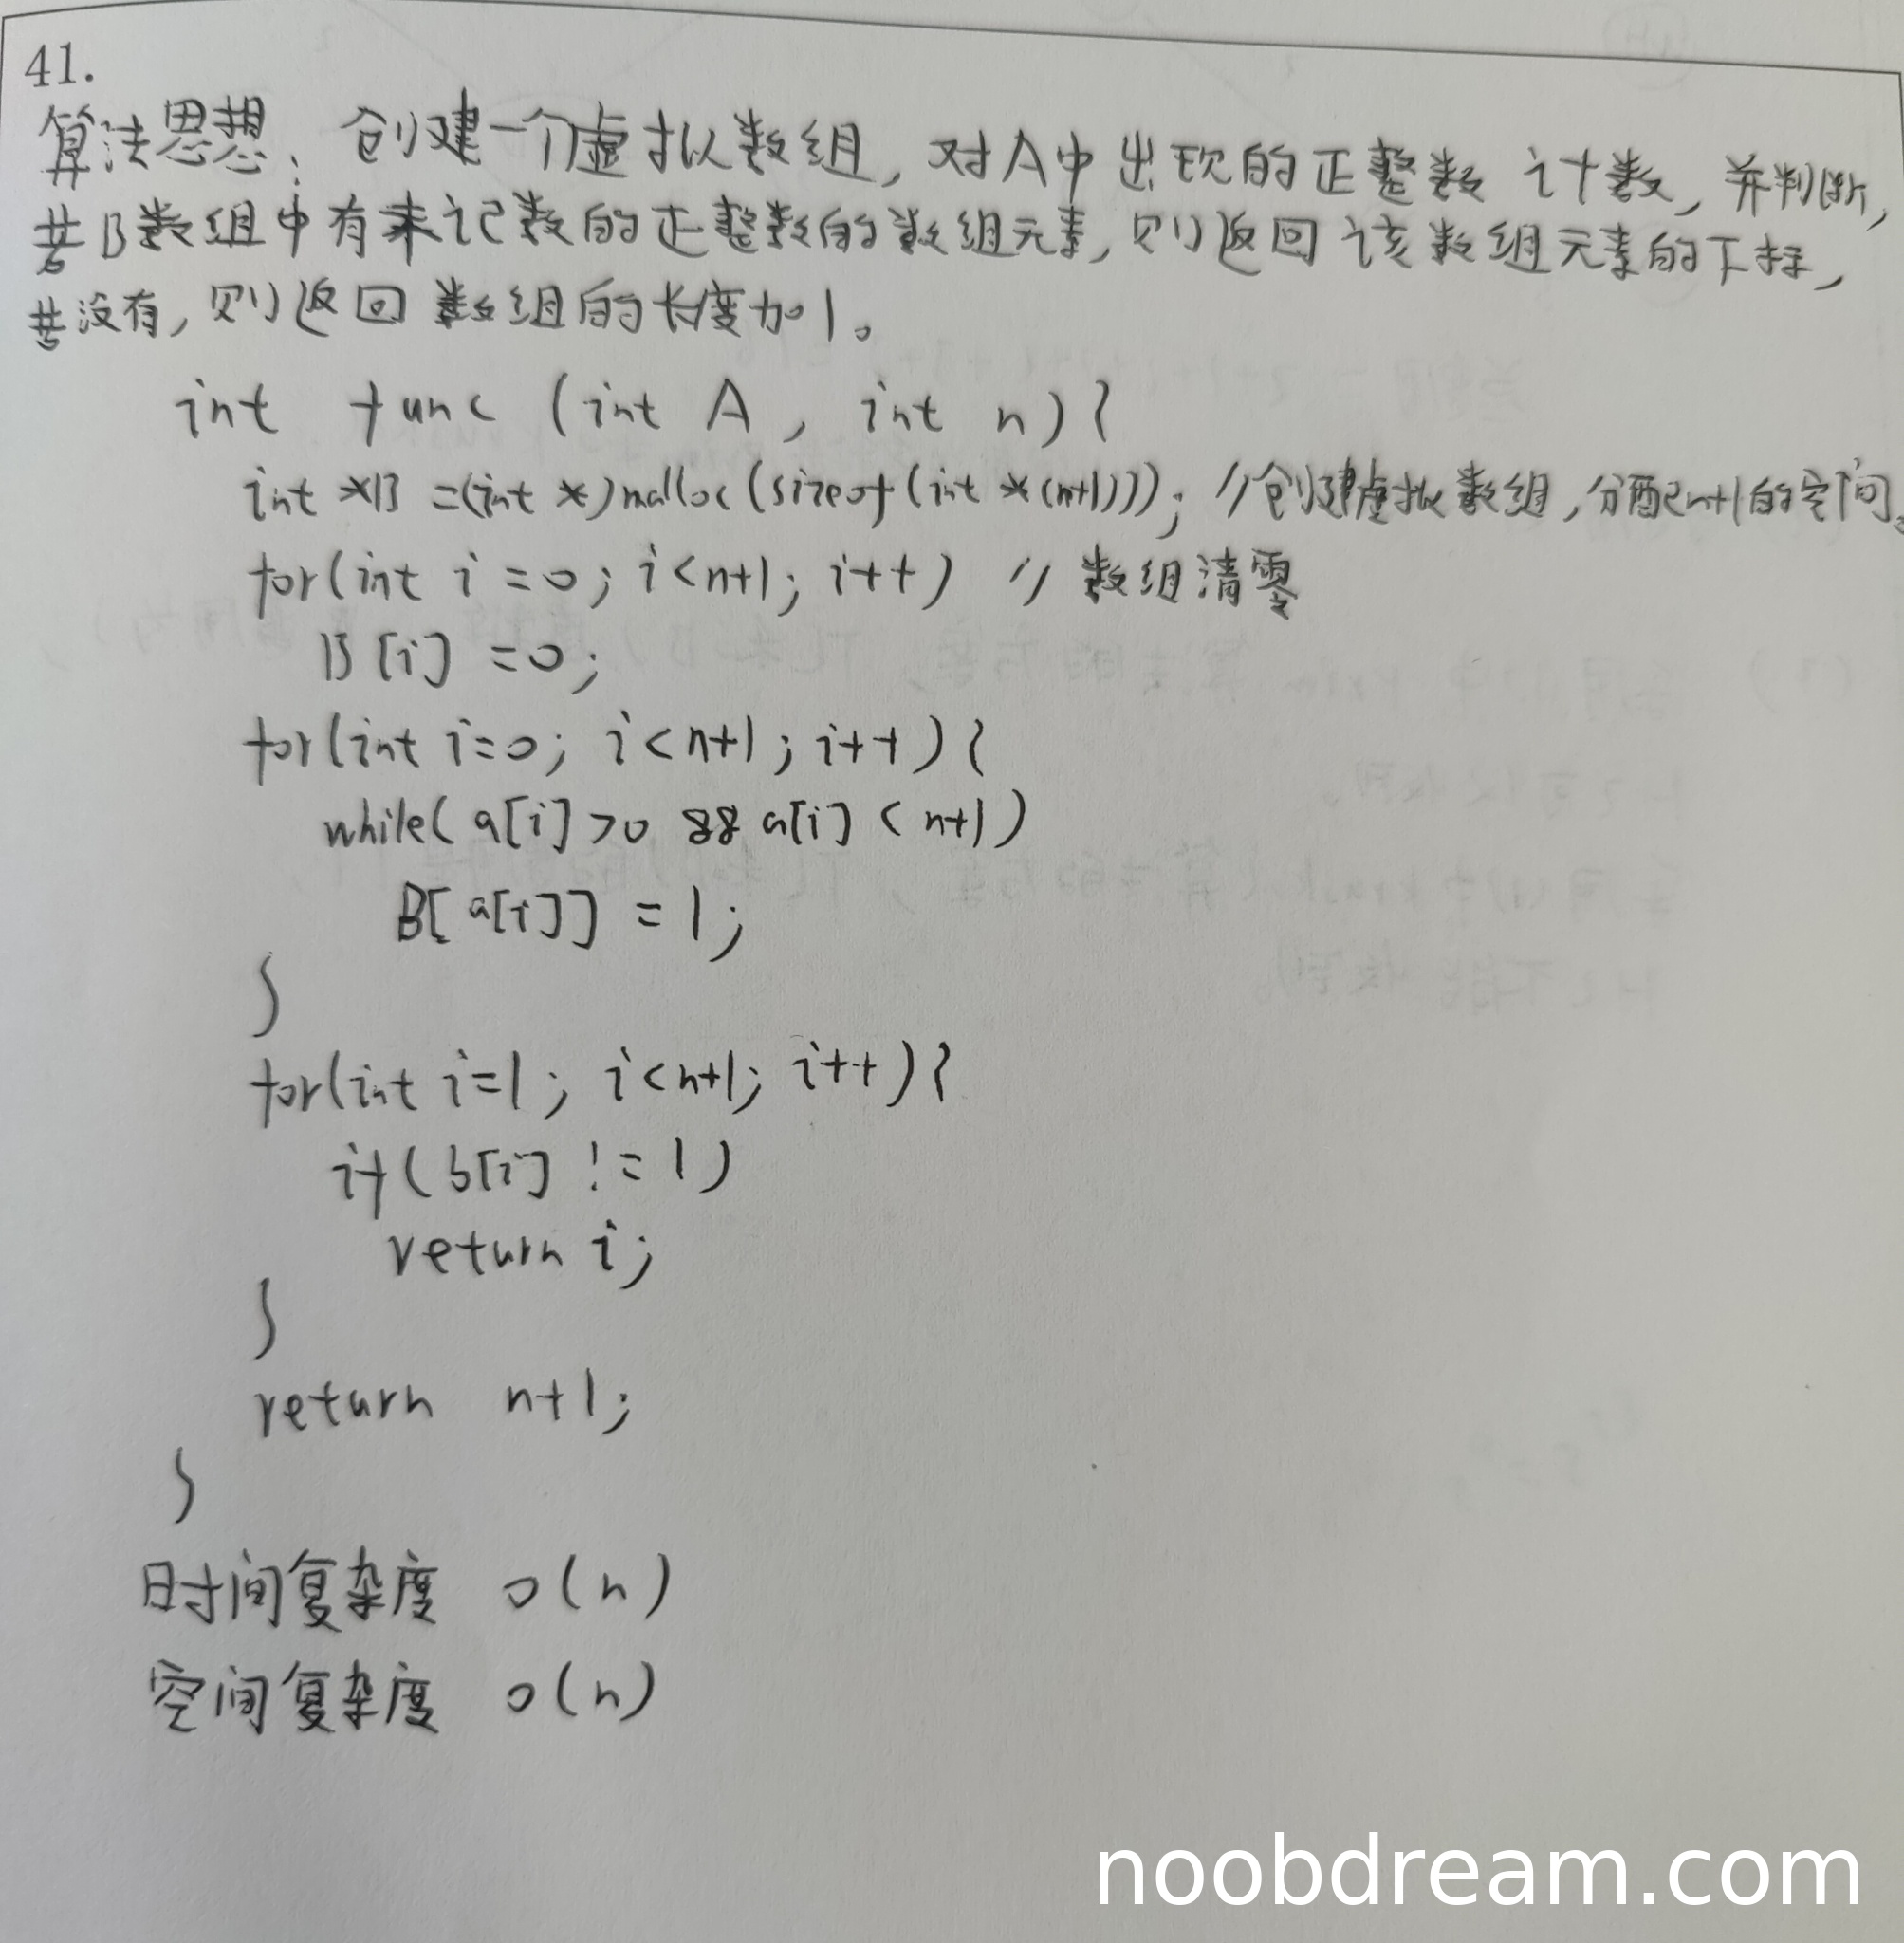 41.
算法思想：创建一个虚拟数组，对A中出现的正整数计数，并判断，
若B数组中有未记数的正整数的数组元素，则返回该数组元素的下标，
若没有，则返回数组的长度加1。
int func (int A, int n){
int *B =(int *)malloc(sizeof(int *(n+1))); //创建虚拟数组，分配n+1的空间。
for(int i=0; i<n+1; i++) //数组清零
B[i]=0;
for(int i=0; i<n+1; i++){
while(a[i]>0 && a[i]<n+1)
B[a[i]]=1;
}
for(int i=1; i<n+1; i++){
if(b[i] !=1)
return i;
}
return n+1;
}
时间复杂度 o(n)
空间复杂度 o(n)
noobdream.com